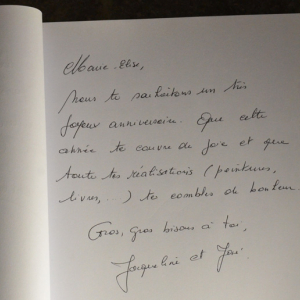 Marie-Elise,
Nous te souhaitons un très
joyeux anniversaire. Que cette
année te couvre de joie et que
toute tes réalisations (peintures,
livres,...) te combles de bonheur
Gros, gros bisous à toi,
Jacqueline et